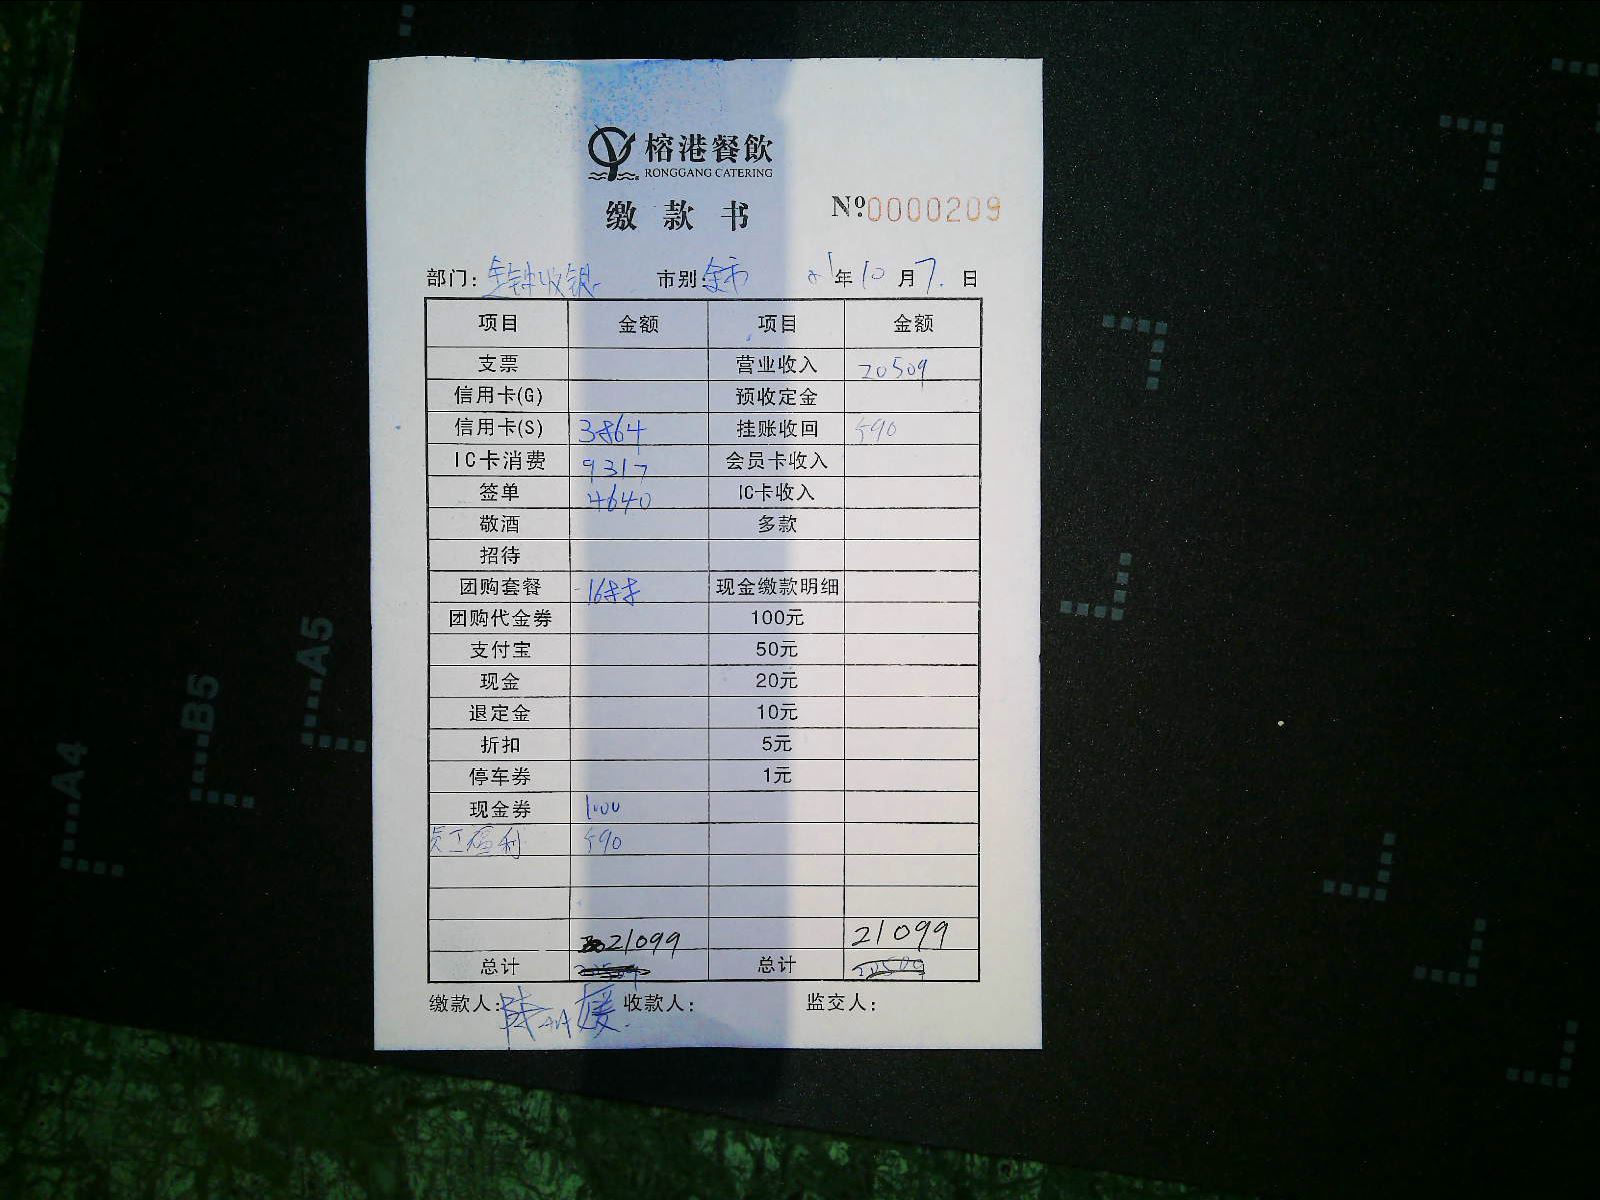 榕港餐飲
RONGGANG CATERING
缴款书
Nº0000209
部门: 金钟收银 市别: 全市 21年10月7日
项目 金额 项目 金额
支票 营业收入 20509
信用卡(G) 预收定金
信用卡(S) 3864 挂账收回 590
IC卡消费 9317 会员卡收入
签单 4640 IC卡收入
敬酒 多款
招待
团购套餐 1688 现金缴款明细
团购代金券 100元
支付宝 50元
现金 20元
退定金 10元
折扣 5元
停车券 1元
现金券 1000
员工福利 590
21099 21099
总计 总计 20509
缴款人: 收款人: 监交人:
A4
B5
A5